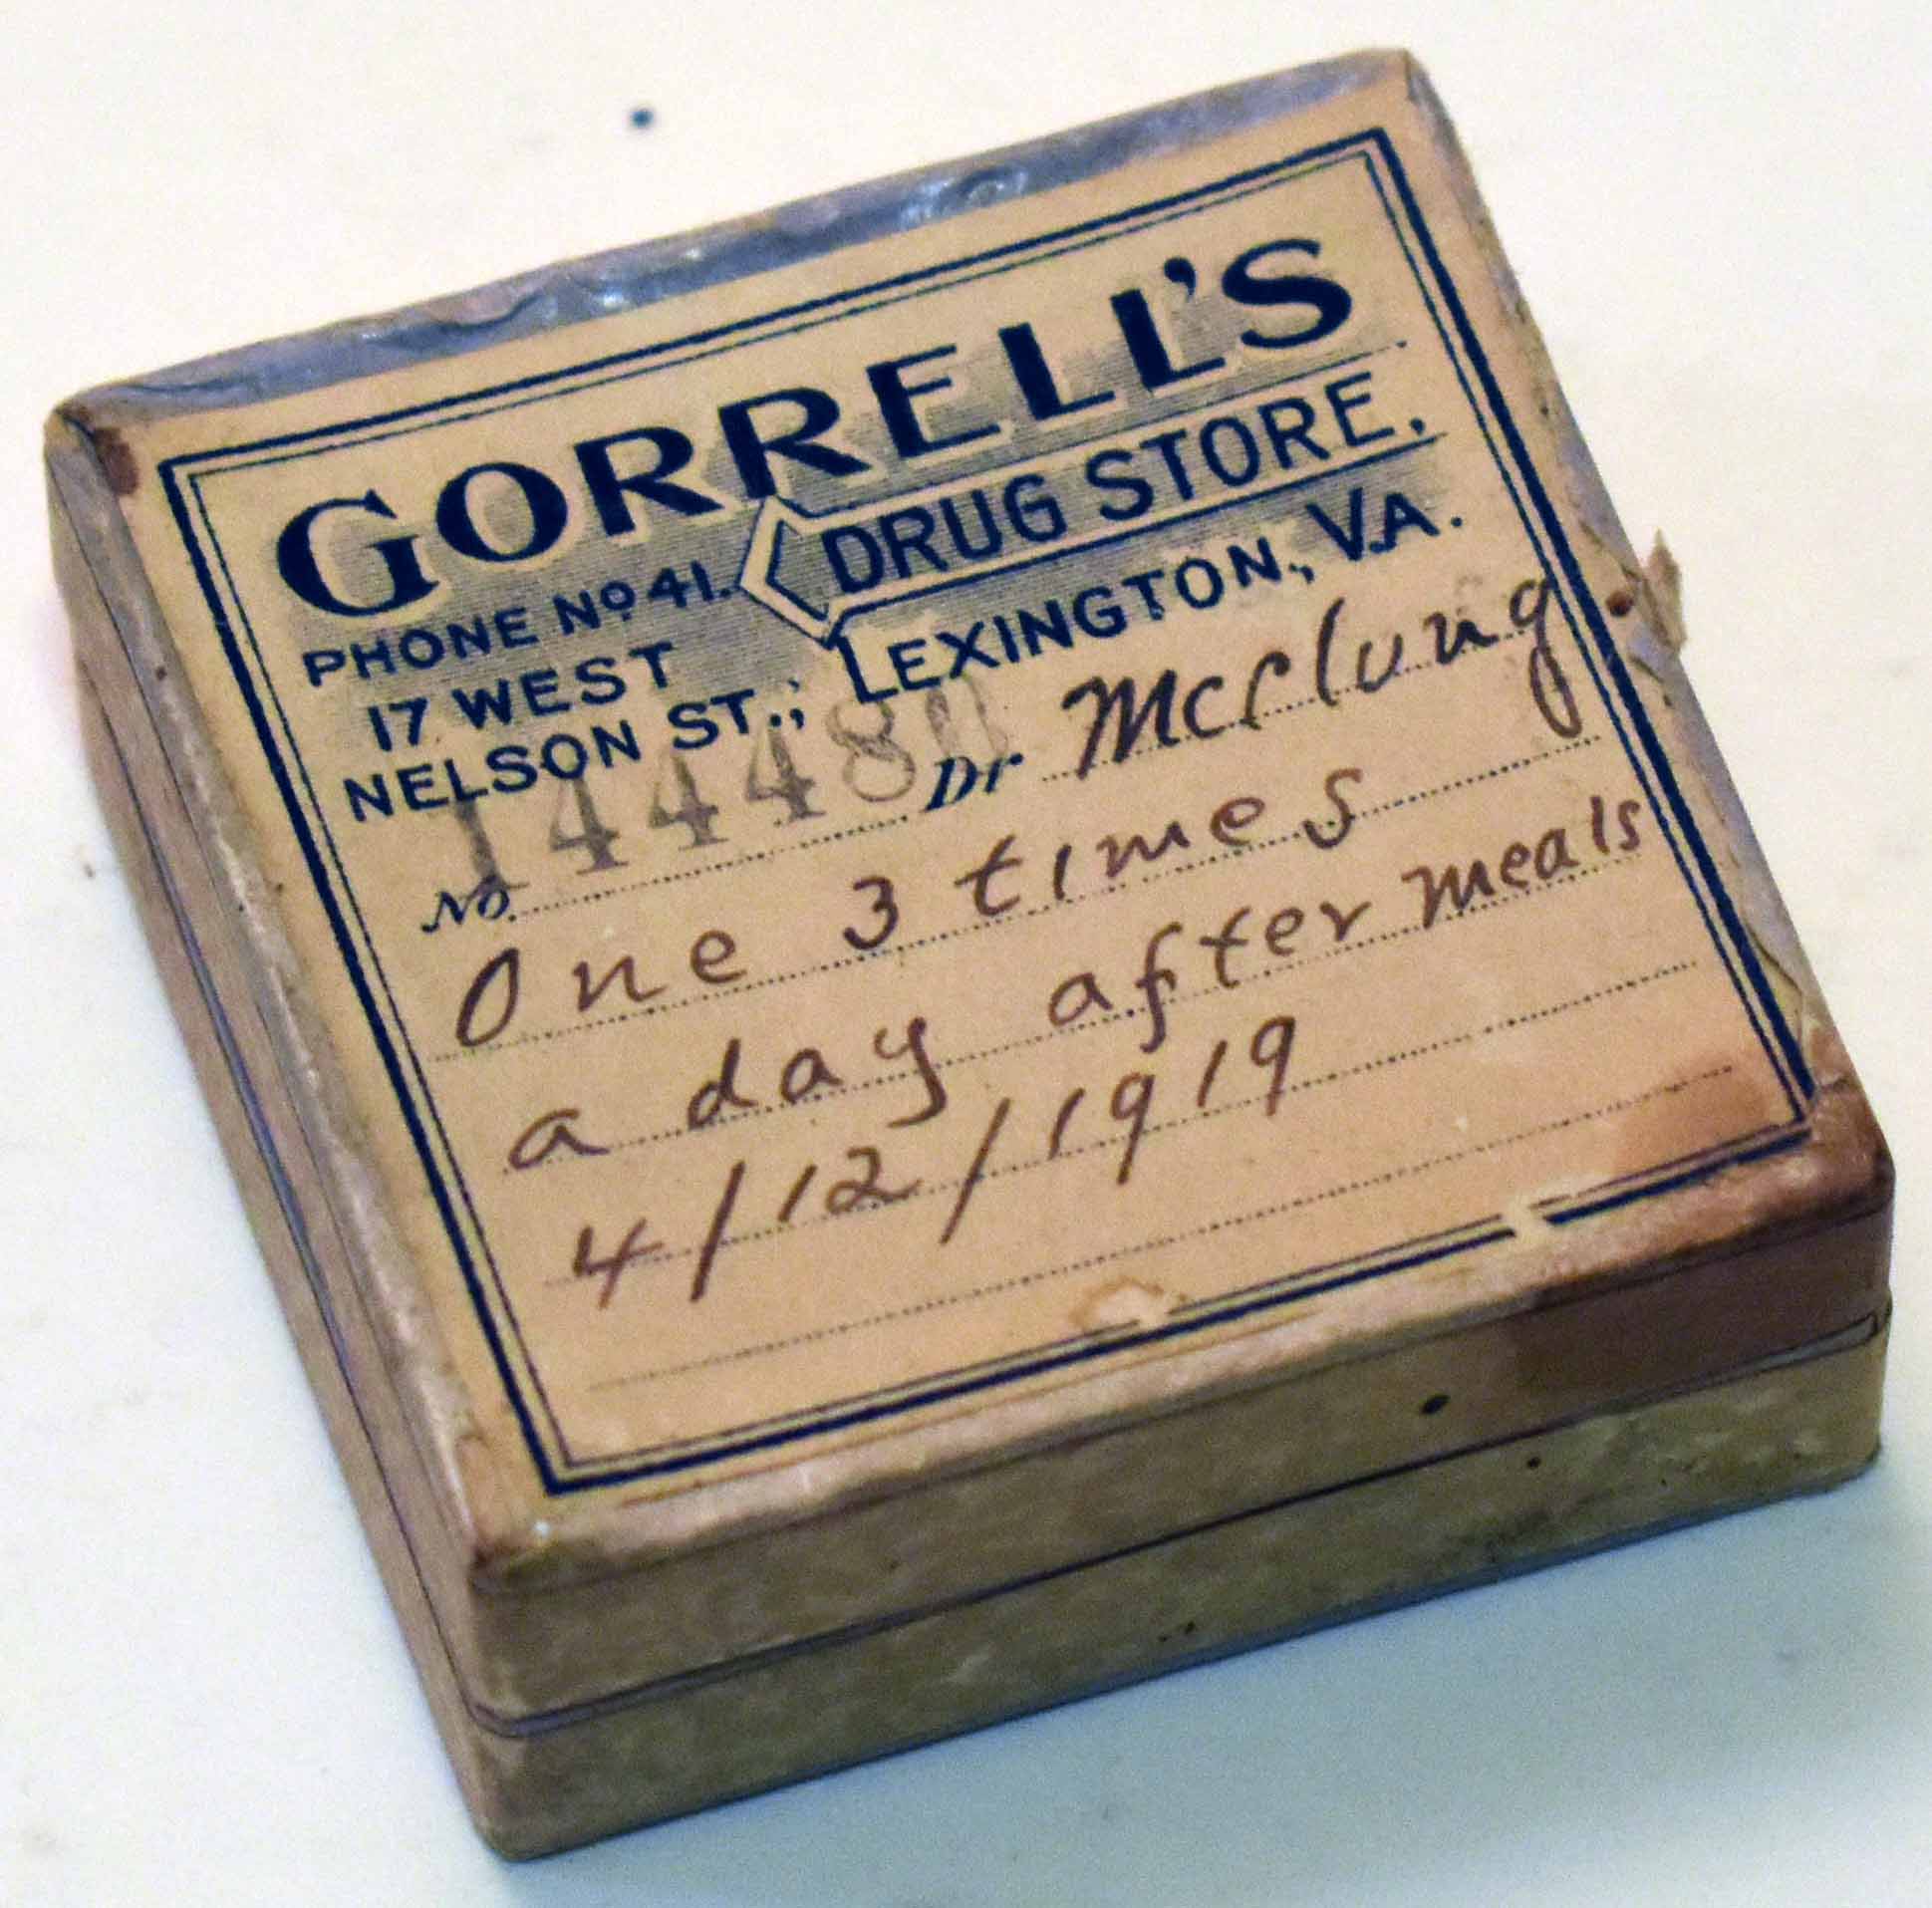 GORRELL'S
DRUG STORE.
PHONE No 41.
17 WEST
NELSON ST.; LEXINGTON, VA.
No. 14480 Dr McClung.
One 3 times
a day after meals
4/12/1919